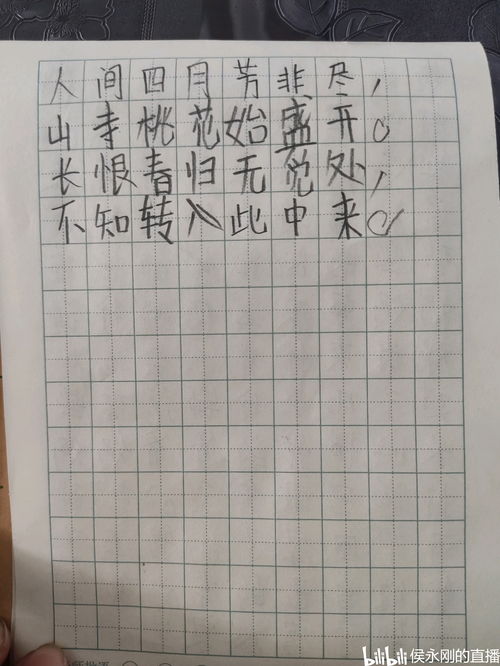 人间四月芳菲尽，
山寺桃花始盛开。
长恨春归无觅处，
不知转入此中来。
bilibili 侯永刚的直播